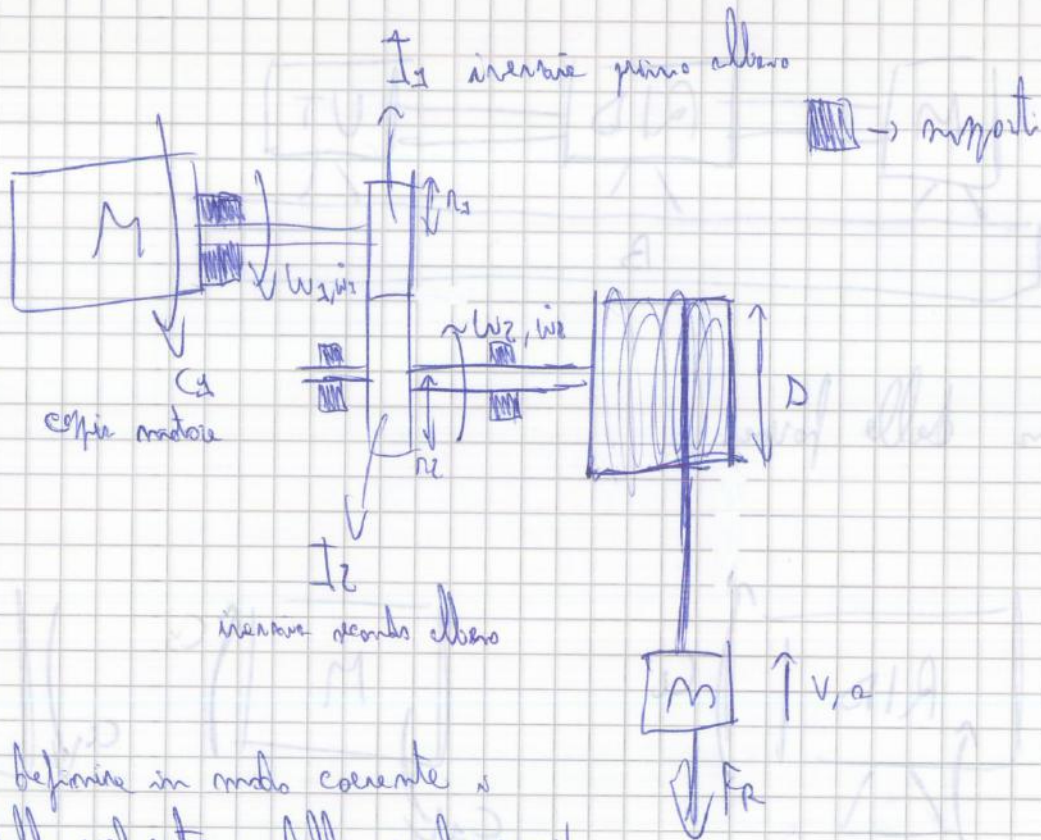 I1 inerzia primo albero
→ supporti
M
r1
ω1, ω̇1
C1
coppia motore
ω2, ω̇2
D
r2
I2
inerzia secondo albero
m
v, a
FR
Definire in modo coerente i